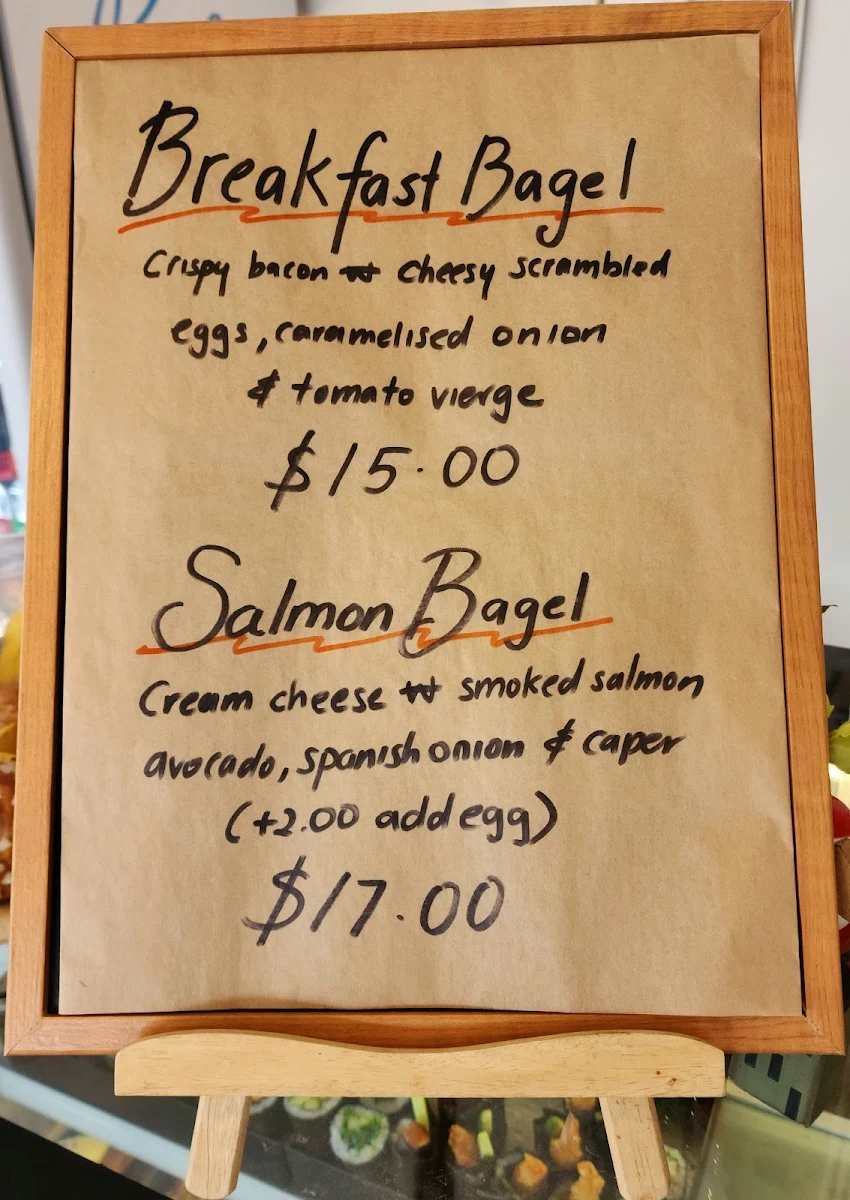 Breakfast Bagel
Crispy bacon w cheesy scrambled
eggs, caramelised onion
& tomato vierge
$15.00
Salmon Bagel
Cream cheese w smoked salmon
avocado, spanish onion & caper
(+2.00 add egg)
$17.00